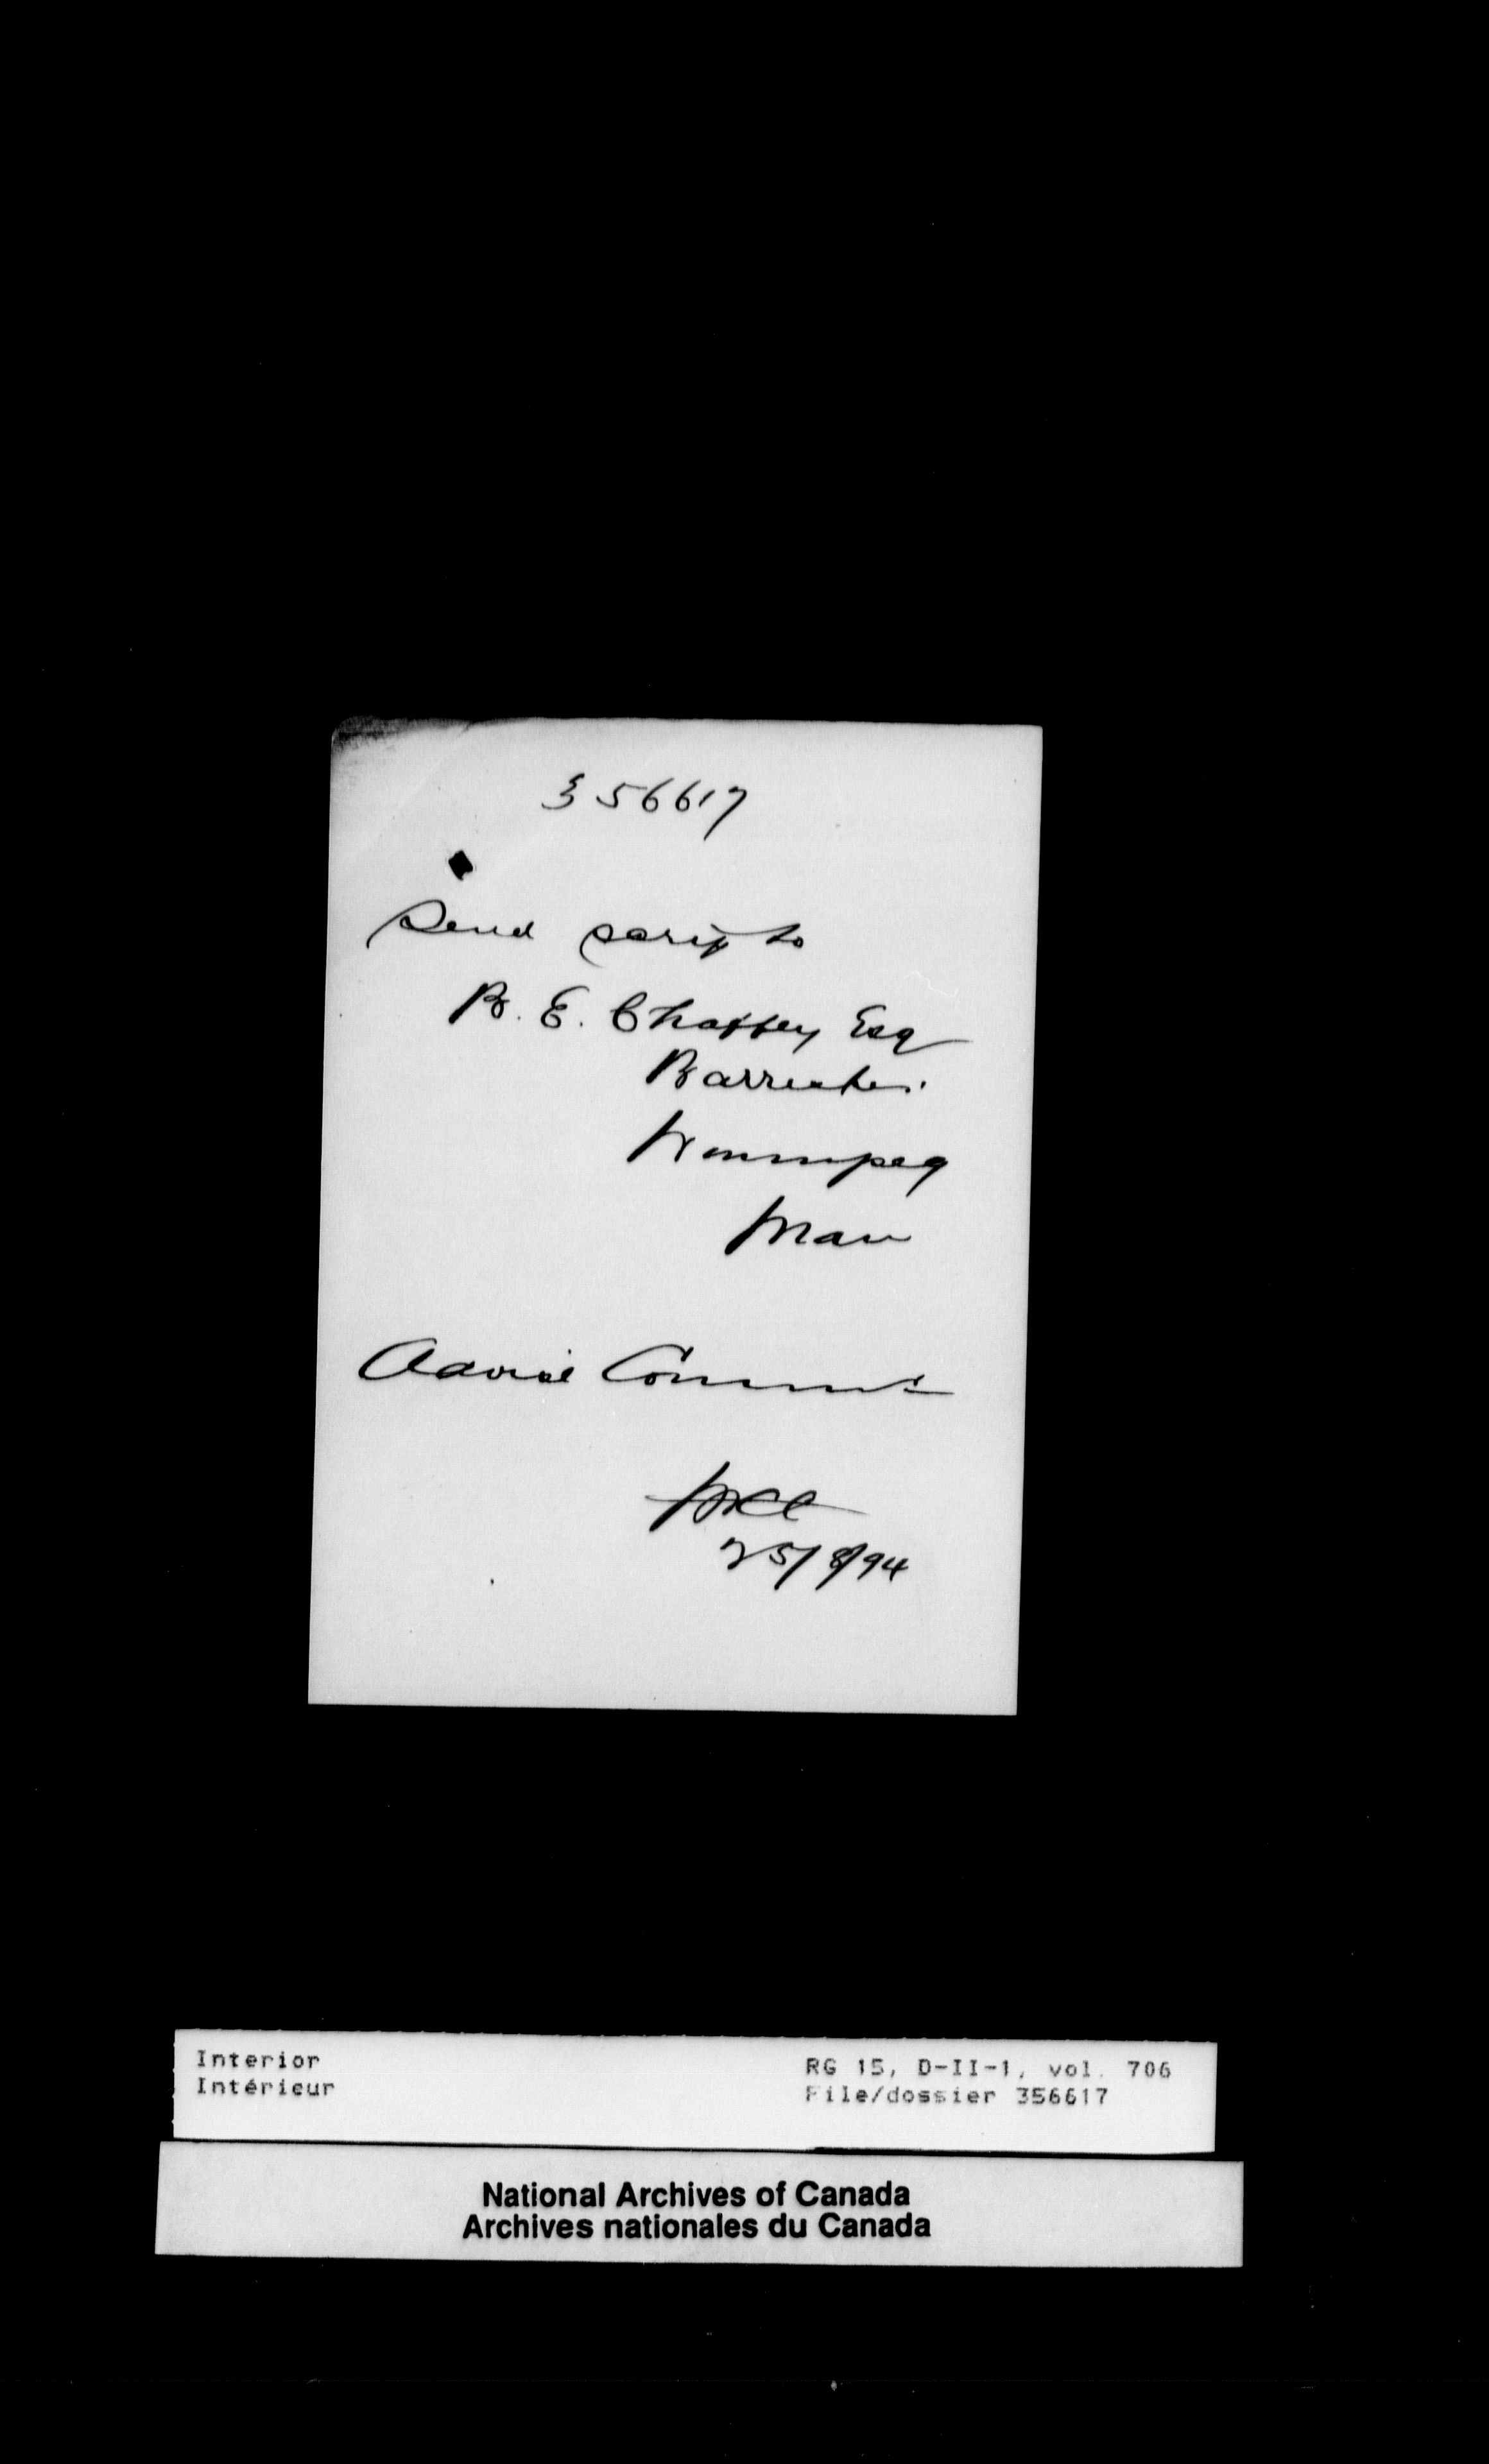 356617
Send scrip to
B. E. Chaffey Esq
Barrister.
Winnipeg
Man
Advise Commr
25/8/94
Interior
Intérieur
RG 15, D-II-1, vol. 706
File/dossier 356617
National Archives of Canada
Archives nationales du Canada